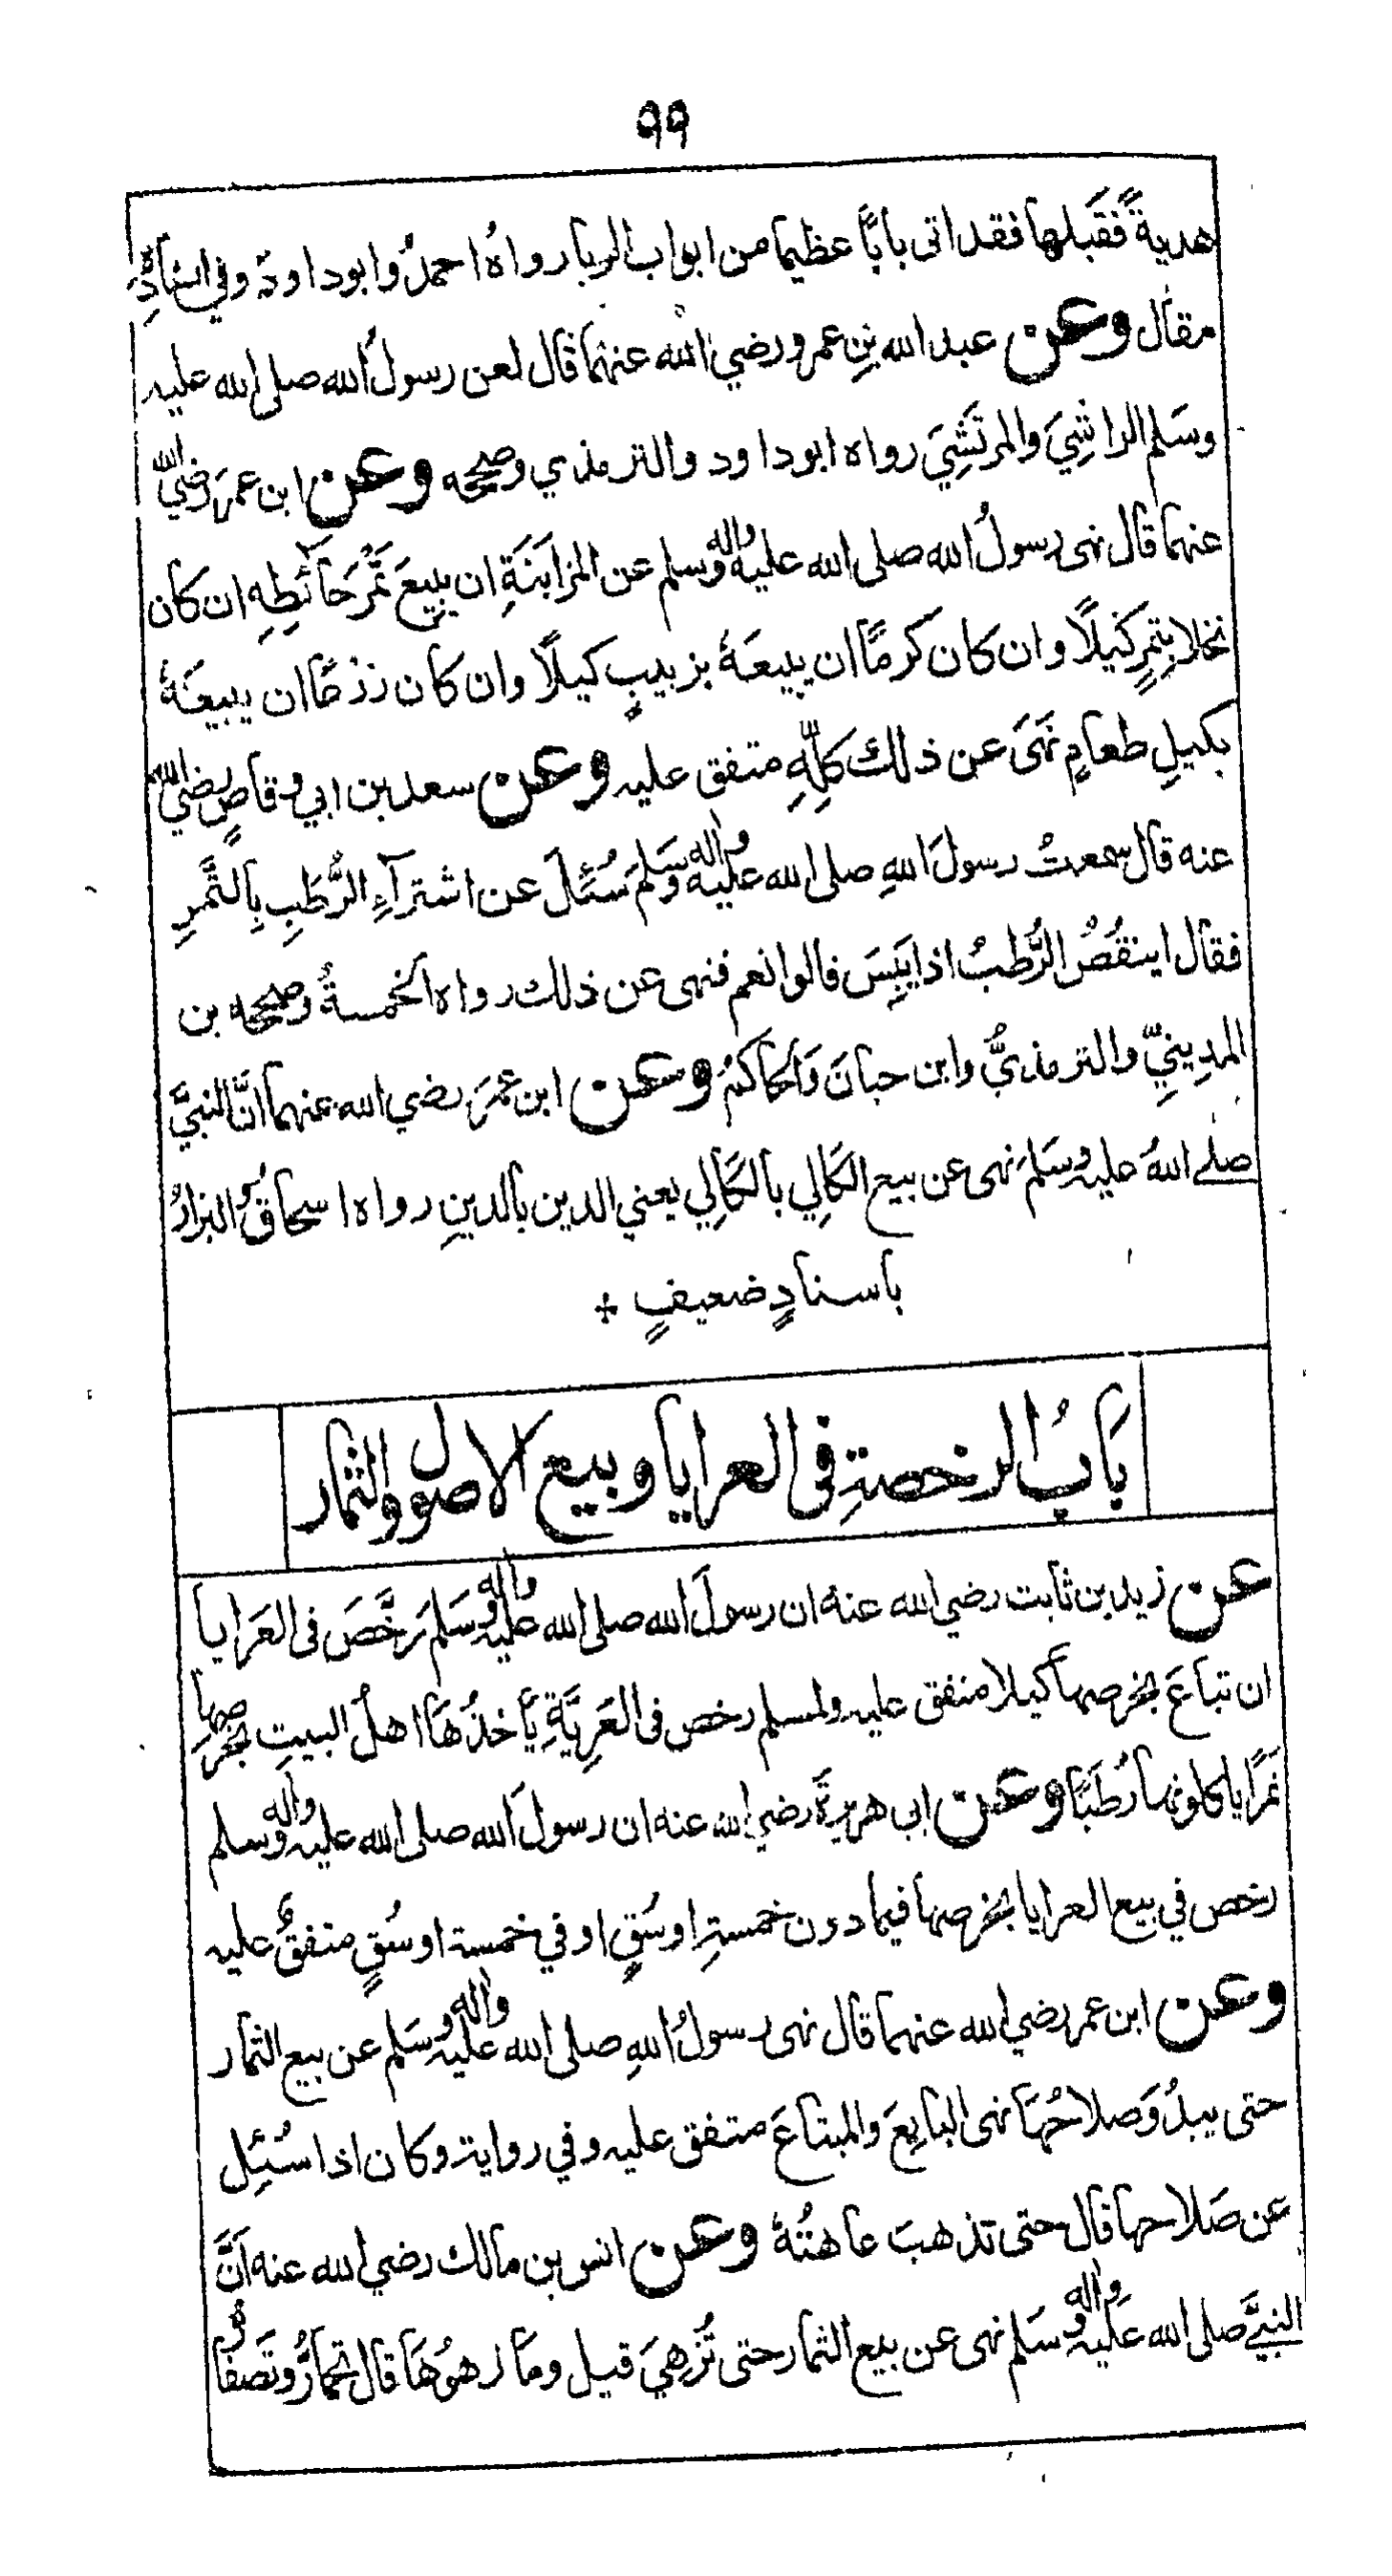 ٩٩
هديةً فقَبلها فقد اتى بابًا عظيما من ابواب الربا رواهُ احمدُ وابوداودَ وفي اسنادِهٖ
مقال وعن عبد الله بنِ عمرو رضي الله عنهما قال لعن رسولُ الله صلى الله عليه
وسَلم الراشِيَ والمرتَشِيَ رواه ابوداود والترمذي وصححه وعن ابن عمَرَ رضي الله
عنهما قال نهى رسولُ الله صلى الله عليه واٰله وسلم عن المزابَنَةِ ان يبيعَ ثَمْرَ حَائطِهٖ ان كان
نخلا بِتمرٍ كَيلًا وان كان كرمًا ان يبيعَهٗ بزبيبٍ كيلًا وان كان زَرْعًا ان يبيعَهٗ
بكيلِ طعامٍ نَهَى عن ذلك كلِّهٖ متفق عليه وعن سعد بن ابي وقاصٍ رضي الله
عنه قال سمعتُ رسولَ اللهِ صلى الله عليه واٰله وسَلمَ سُئلَ عن اشترآءِ الرُّطَبِ بِالتَّمرِ
فقال اينقُصُ الرُّطبُ اذا يَبِسَ قالوا نعم فنهى عن ذلك رواه الخمسةُ وصححه بن
المدِينيِّ والترمذيُّ وابن حبانَ وَالحَاكمُ وعن ابن عمَرَ رضي الله عنهما انَّ النبيَّ
صلے اللهُ عليه وسَلمَ نهى عن بيع الكَالِي بالكَالِي يعني الدين بالدينِ رواه اسحاقُ والبزارُ
باسنادٍ ضعيفٍ +
بَابُ الرخصةِ فى العرايا وبيع الاصول والثمار
عن زيد بن ثابت رضي الله عنه ان رسولَ الله صلى الله عليه واٰله وسَلم رَخَّصَ فى العَرايا
ان تباعَ بخرصها كيلا متفق عليه ولمسلم رخص فى العَرِيَّةِ يَأخذُهَا اهلُ البيتِ بخرصها
تمرًا يا كلونها رُطَبًا وعن ابى هريرةَ رضي الله عنه ان رسولَ الله صلى الله عليه واٰله وسلم
رخص في بيع العرايا بخرصها فيما دون خمسةِ اوسُقٍ او في خمسة اوسُقٍ متفقٌ عليه
وعن ابن عمر رضي الله عنهما قال نهى رسولُ اللهِ صلى الله عليه واٰله وسَلم عن بيع الثمار
حتى يبدُوَ صلاحُهَا نهى البايعَ والمبتاعَ متفق عليه وفي رواية وكان اذا سُئِل
عن صَلاحها قال حتى تذهبَ عاهتُهٗ وعن انس بن مالك رضي الله عنه انَّ
النبيَّ صلى الله عَليه واٰله وسَلم نهى عن بيع الثمار حتى تُزهِيَ قيل ومَا زهوُهَا قال تحمارُّ وتَصفارُّ